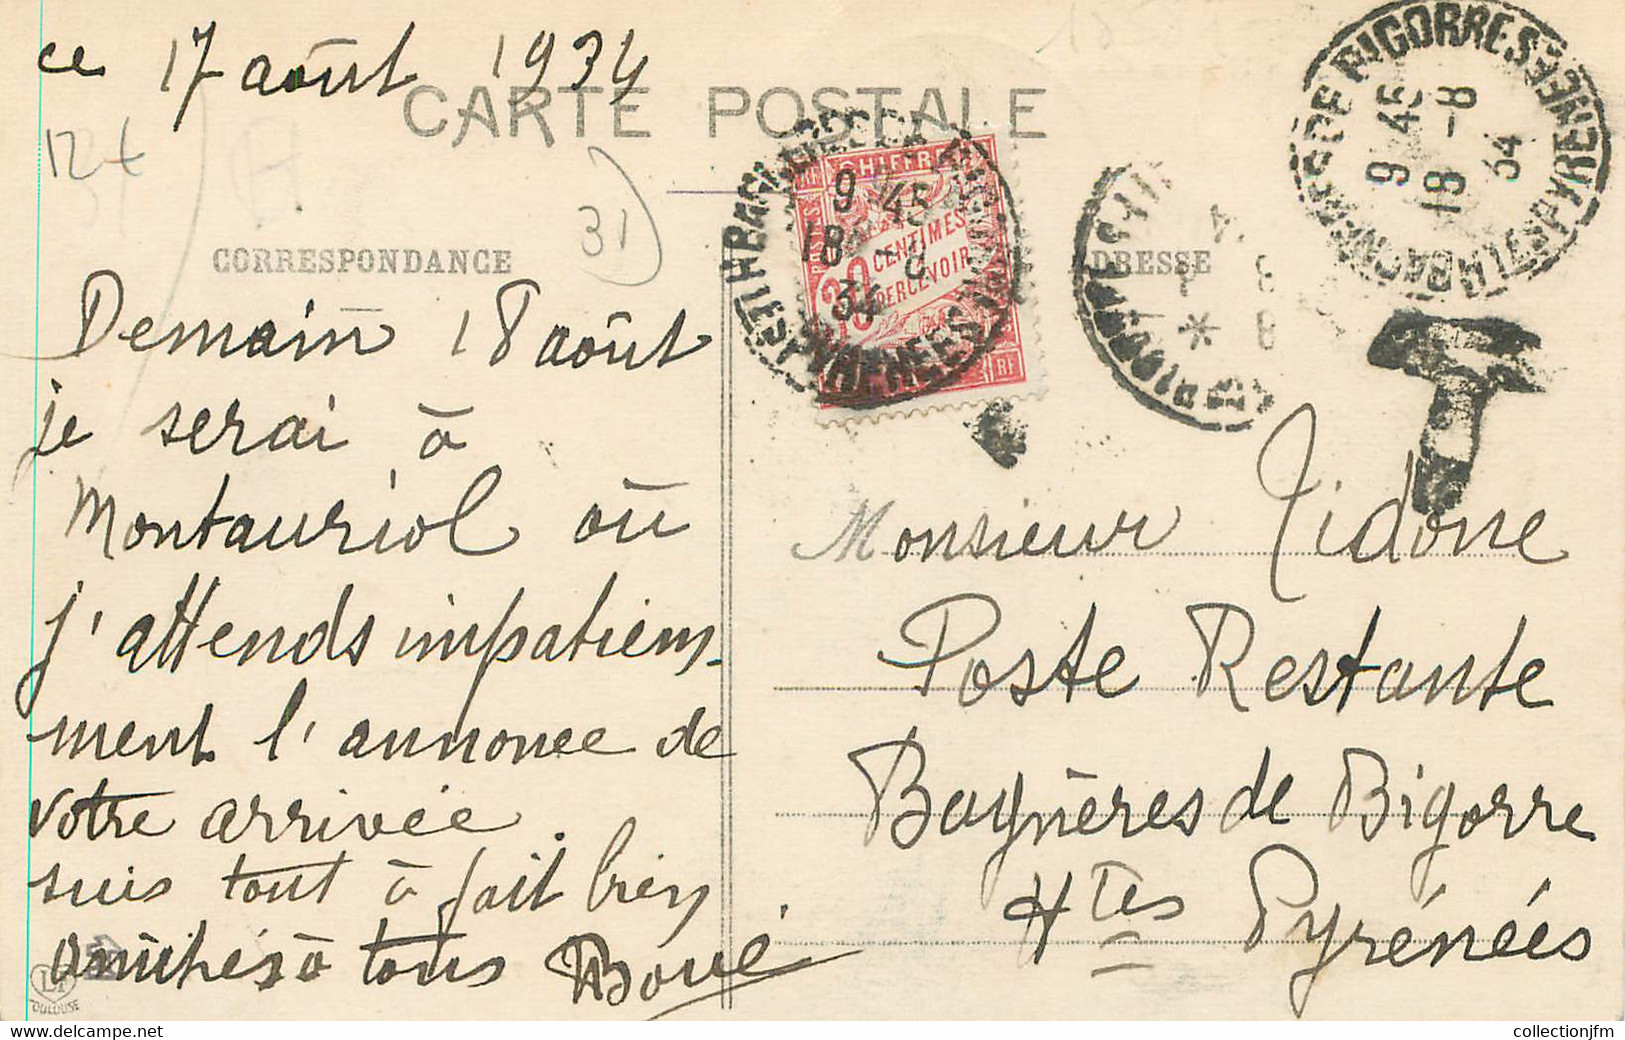 ce 17 août 1934
CARTE POSTALE
12 t
31
CORRESPONDANCE
ADRESSE
Demain 18 août
je serai à
Montauriol où
j'attends impatiem-
ment l'annonce de
votre arrivée.
suis tout à fait bien
amitiés à tous Boué
CHIFFRE
POSTES
30 CENTIMES
A PERCEVOIR
RF
9 45
18 -8
34
HTES PYRENEES
BAGNERES DE BIGORRE
9 45
18 -8
34
HTES PYRENEES
T
Monsieur Tidone
Poste Restante
Bagnères de Bigorre
Htes Pyrénées
TOULOUSE
www.delcampe.net
collectionjfm